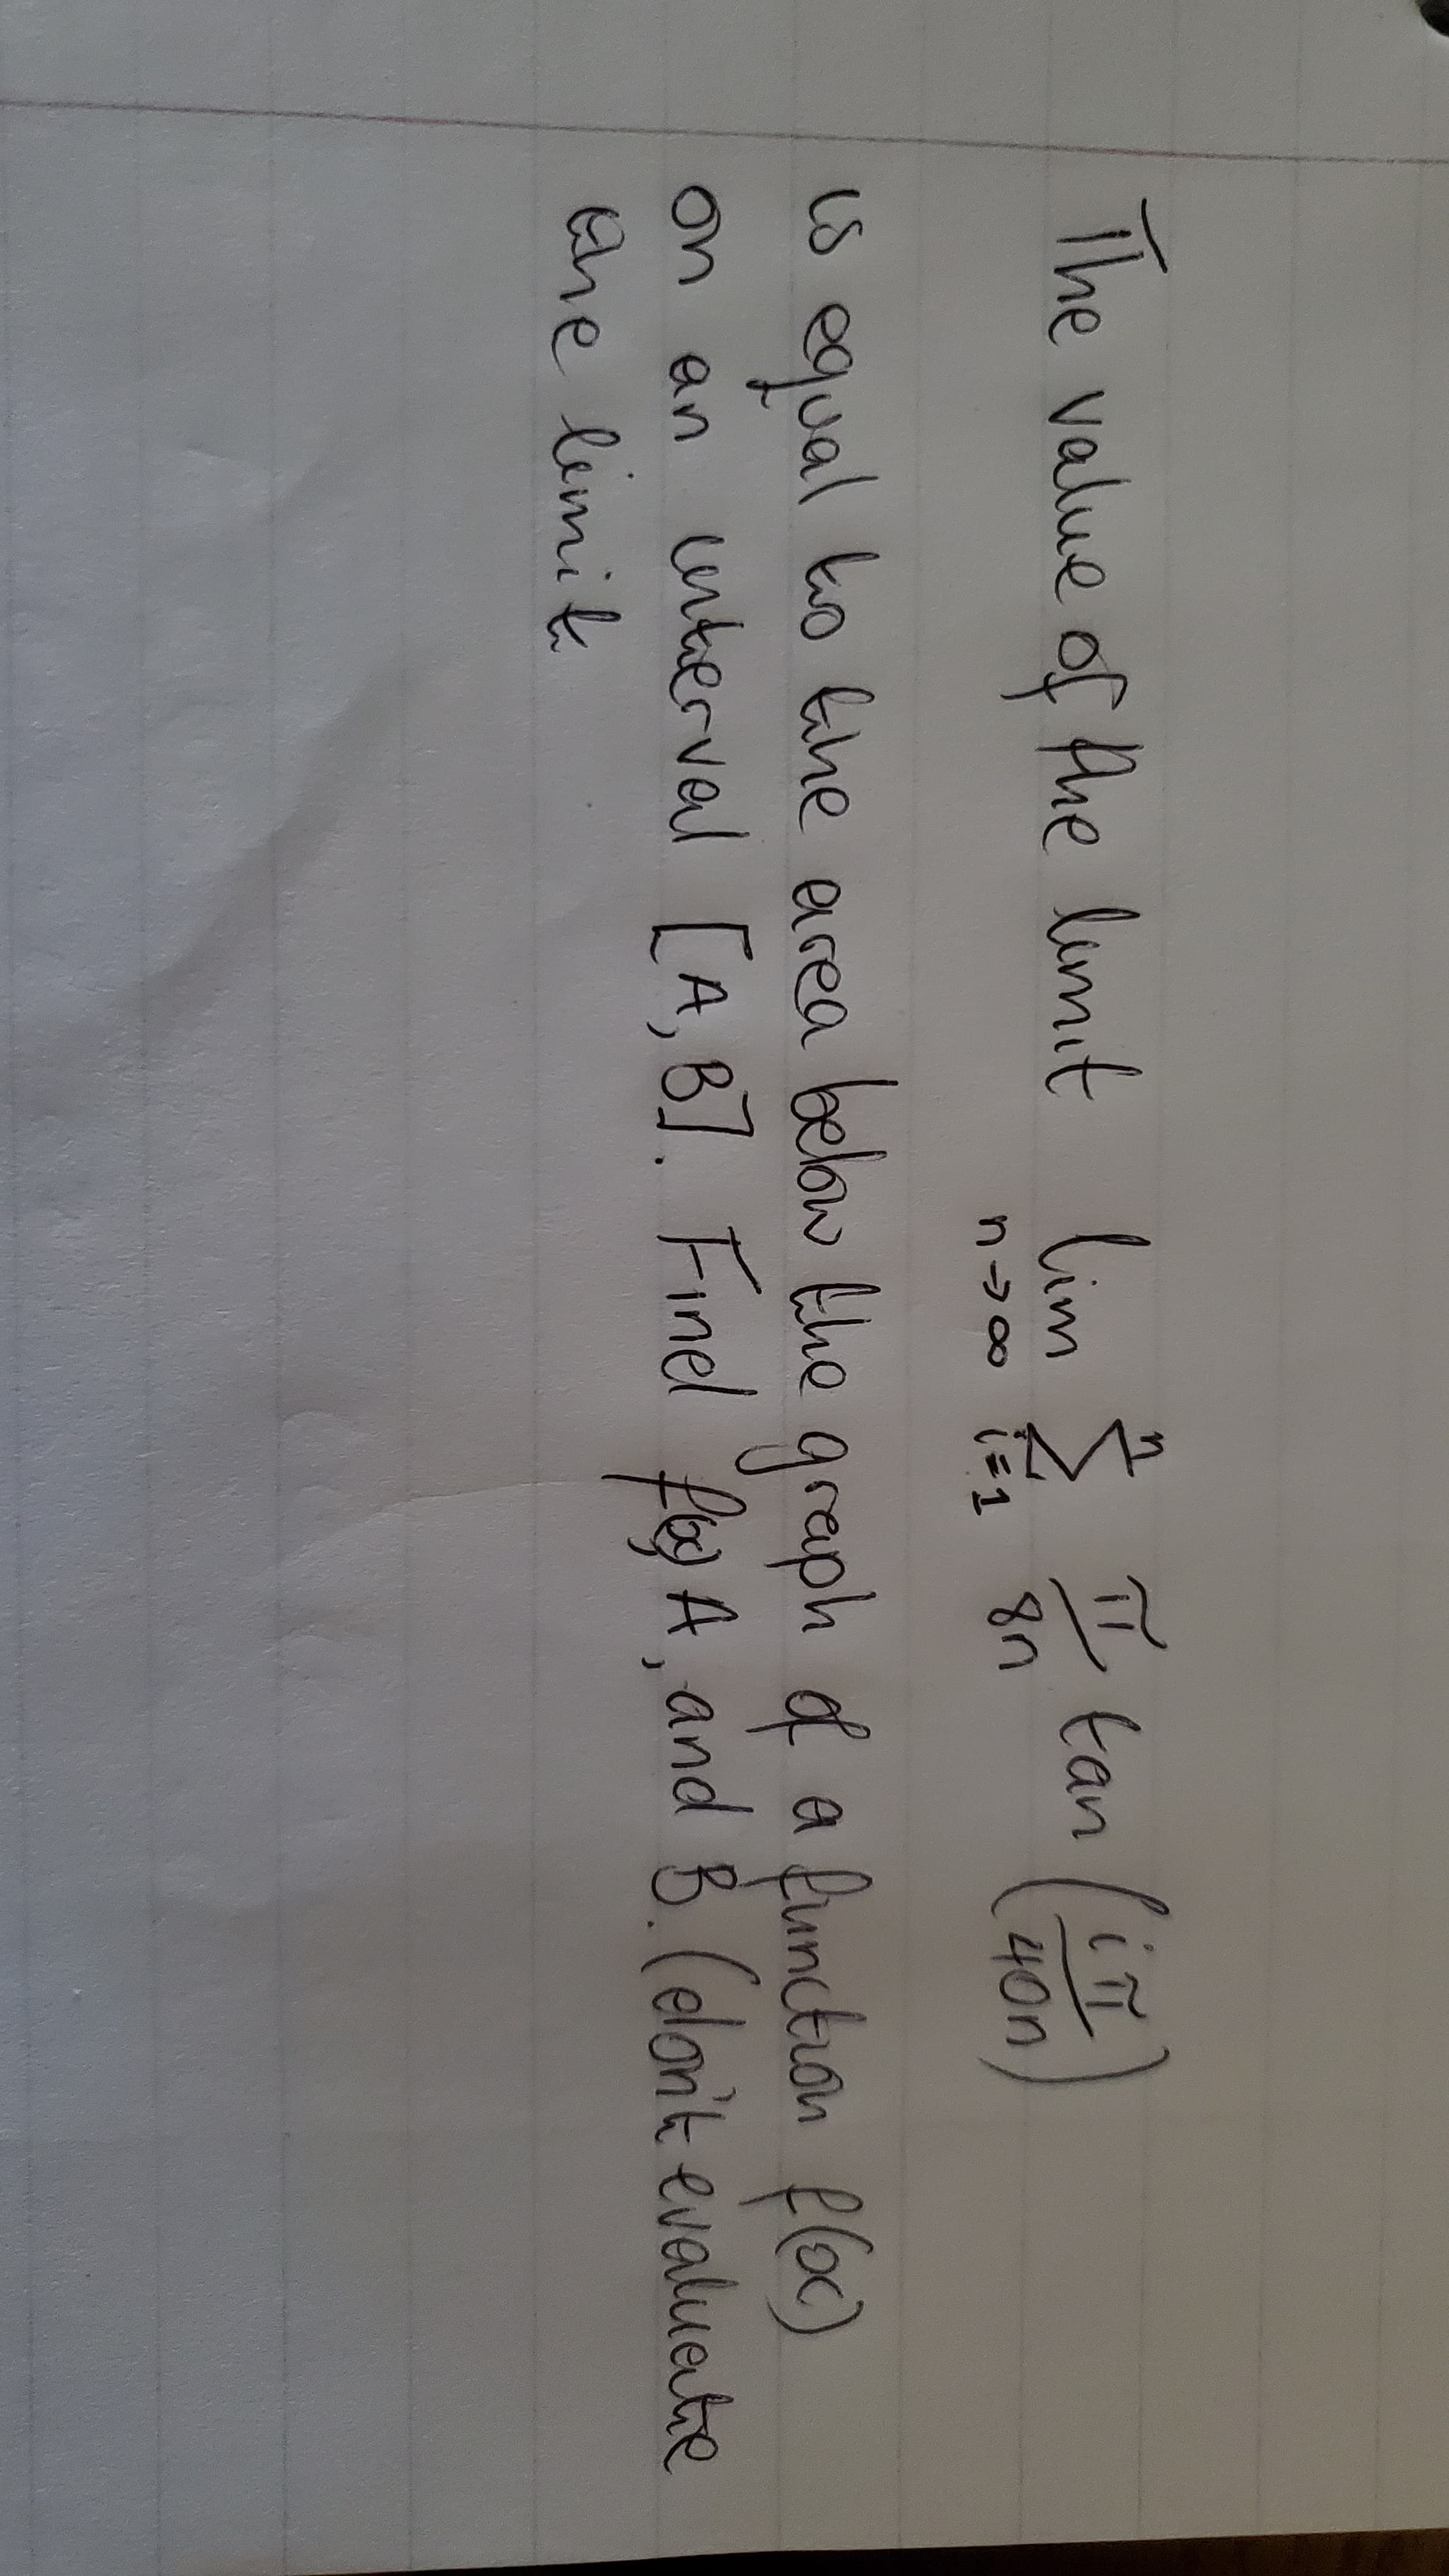 The value of the limit lim n→∞ n Σ i=1 π/8n tan (iπ/40n)
is equal to the area below the graph of a function f(x)
on an interval [A, B]. Find f(x), A, and B. (don't evaluate
the limit